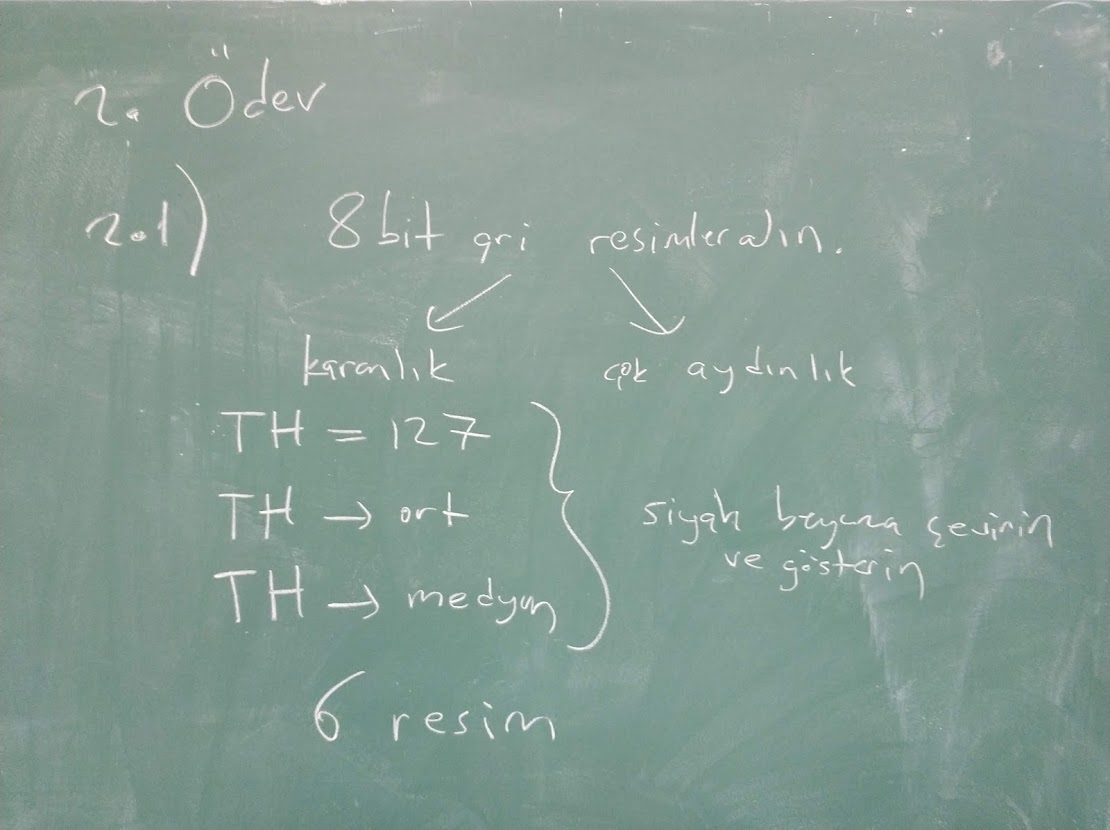 2. Ödev
2.1) 8 bit gri resimler alın.
karanlık çok aydınlık
TH = 127
TH → ort
TH → medyan
siyah beyaza çevirin
ve gösterin
6 resim